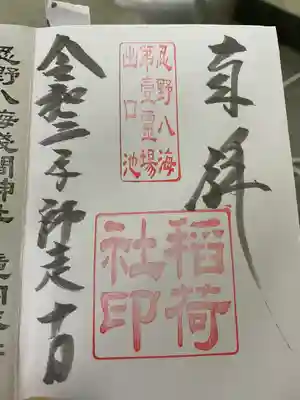 奉拝
忍野八海
第壹霊場
出口池
稲荷
社印
令和三年師走十日
忍野八海淺間神社